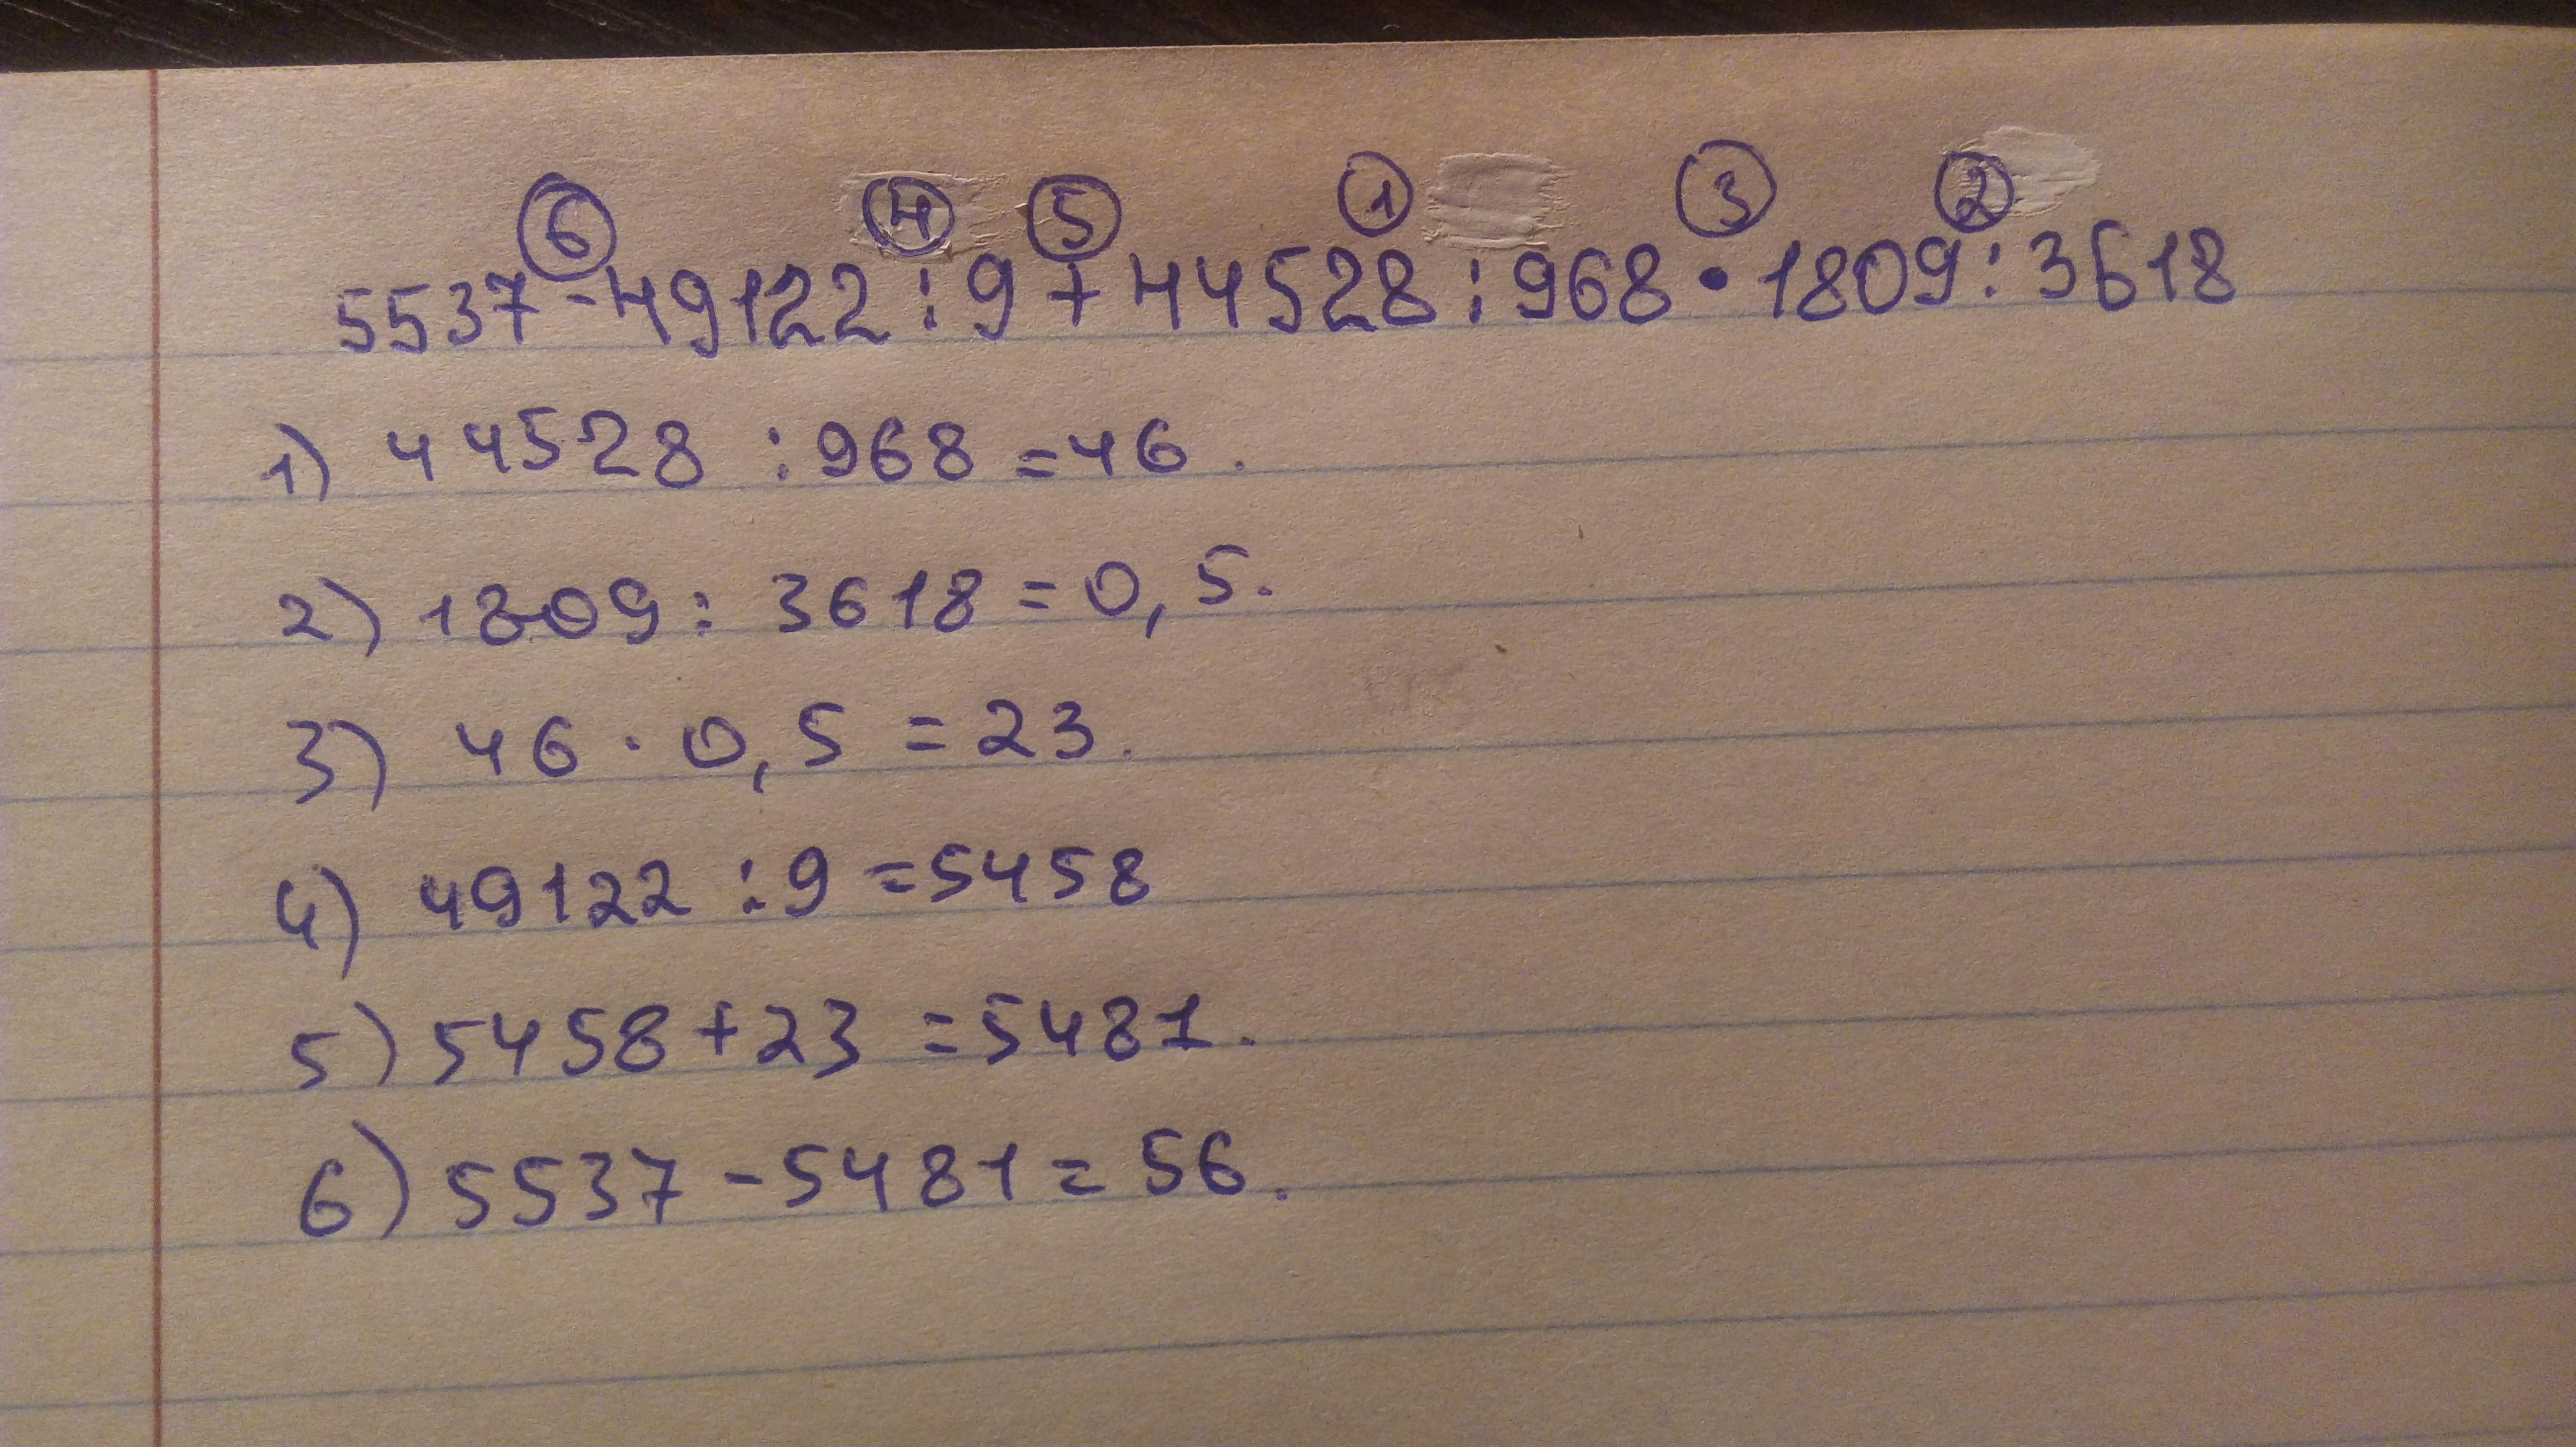 6 4 5 1 3 2
5537 - 49122 : 9 + 44528 : 968 • 1809 : 3618
1) 44528 : 968 = 46.
2) 1809 : 3618 = 0,5.
3) 46 · 0,5 = 23.
4) 49122 : 9 = 5458
5) 5458 + 23 = 5481.
6) 5537 - 5481 = 56.